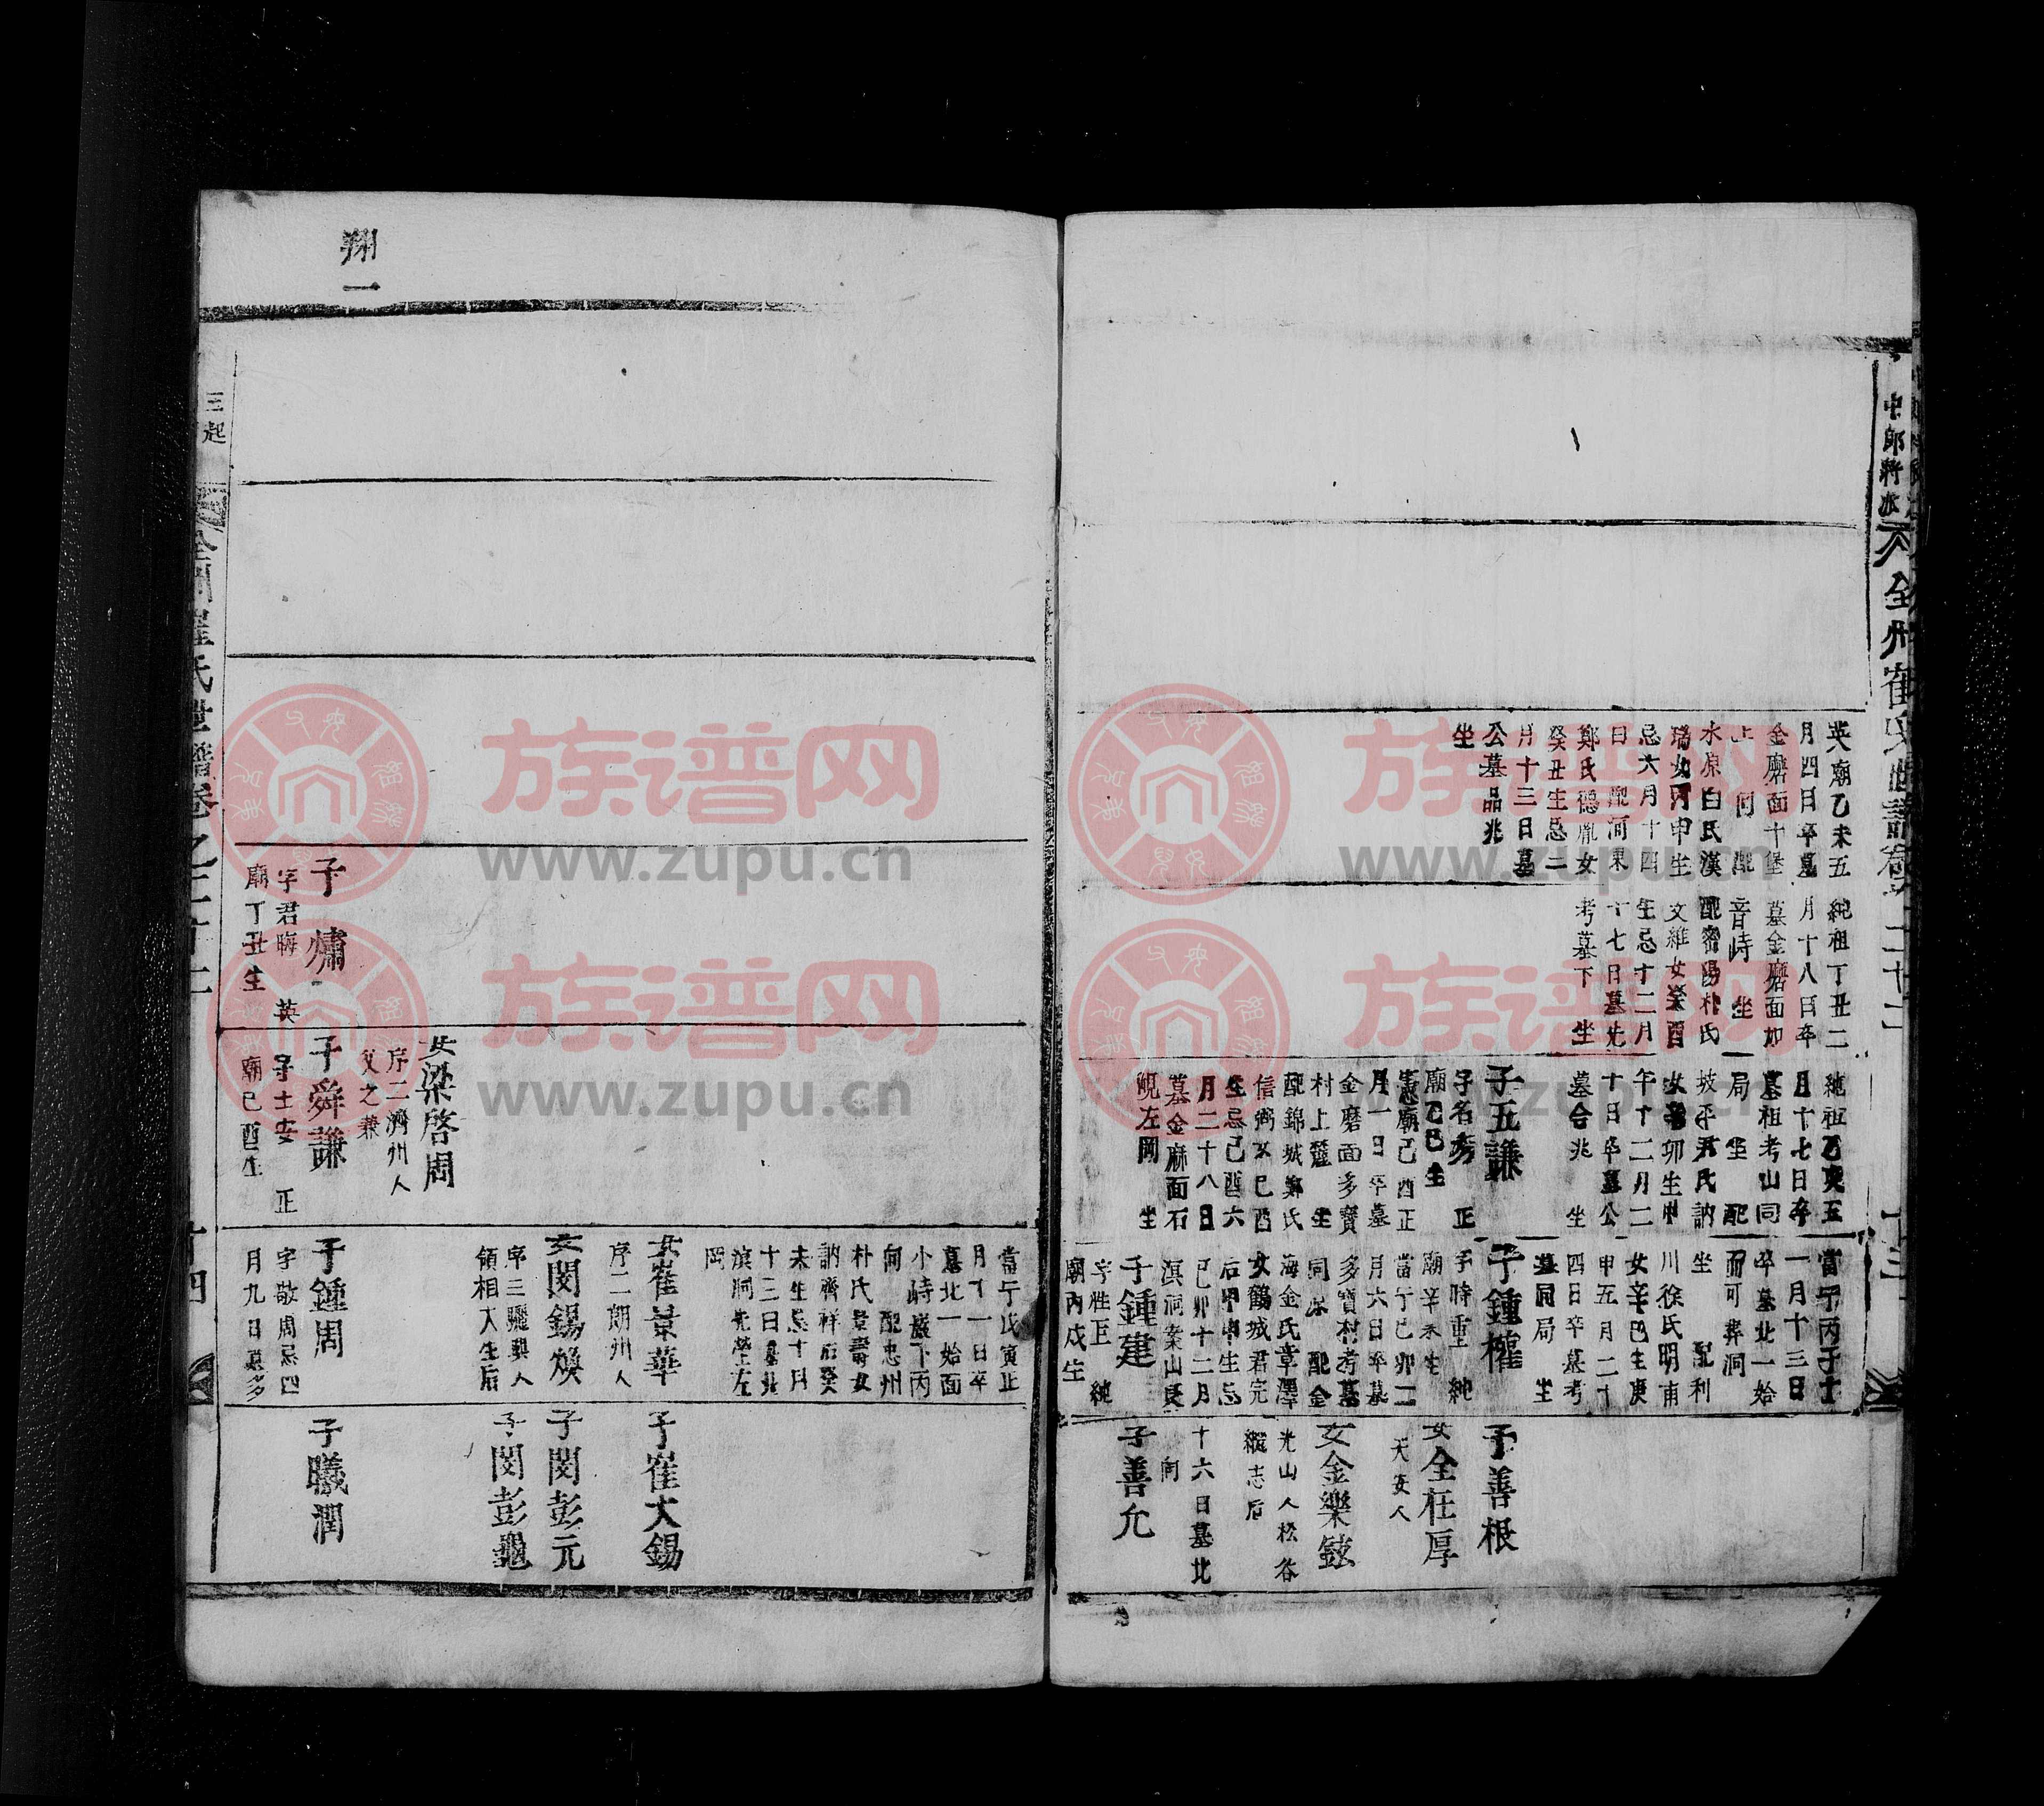 中郎將派
全州崔氏世譜卷
二十二
十三
英廟乙未五
月四日卒墓
金磨面十堡
上 向 配
水原白氏漢
瑞女丙申生
忌六月十四
日 配河東
鄭氏德胤女
癸丑生忌二
月十三日墓
公墓品兆
坐
純祖丁丑二
月十八日卒
墓金磨面加
音峙 坐
配密陽朴氏
文維女癸酉
生忌十二月
十七日墓先
考墓下 坐
純祖乙亥五
月十七日卒
墓祖考山同
局 坐 配
坡平尹氏訥
女辛卯生
午十二月二
十日卒墓公
墓合兆 坐
子五謙
子名彥 正
廟乙巳生
憲廟己酉正
月一日卒墓
金磨面多寶
村上麓 坐
配錦城鄭氏
信弼女己酉
生忌己酉六
月二十八日
墓金麻面石
蜆左岡 坐
當宁丙子十
一月十三日
卒墓北一始
面可葬洞
坐 配利
川徐氏明甫
女辛巳生庚
申五月二十
四日卒墓考
墓同局 坐
子鍾權
字時重 純
廟辛未生
當宁己卯二
月六日卒墓
多寶村考墓
同原 配金
海金氏章澤
女鶴城君完
后甲申生忌
己卯十二月
淇洞案山艮
子鍾建
字性正 純
廟丙戌生
子善根
女全在厚
天安人
女金樂鉉
光山人松谷
縱志后
十六日墓北
向
子善允
翔一
三起
全州崔氏世譜卷之二十二
十四
子 㷩
字君晦 英
廟丁丑生
女梁啓周
序二濟州人
父之兼
子舜謙
字士安 正
廟己酉生
當宁戊寅正
月十一日卒
墓北一始面
小峙嚴下丙
向 配忠州
朴氏景壽女
訥齊祥后癸
未生忌十月
十三日墓北
淇洞先塋左
岡
女崔景華
序二朗州人
女閔錫煥
序三驪興人
領相大生后
子鍾周
字敬周忌四
月九日墓多
子崔大錫
子閔彭元
子閔彭龜
子曦潤
族谱网
www.zupu.cn
族谱网
www.zupu.cn
族谱网
www.zupu.cn
族谱网
www.zupu.cn